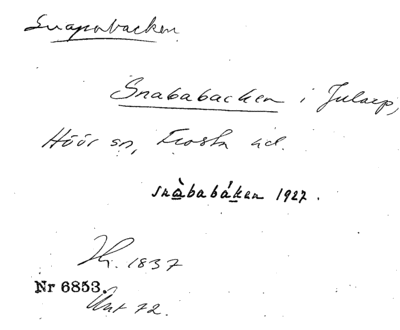 Snapabacken
Snababacken i Jularp,
Höör sn, Frosta hd.
snàbabáken 1927.
Th. 1837
Nr 6853.
Ant 72.